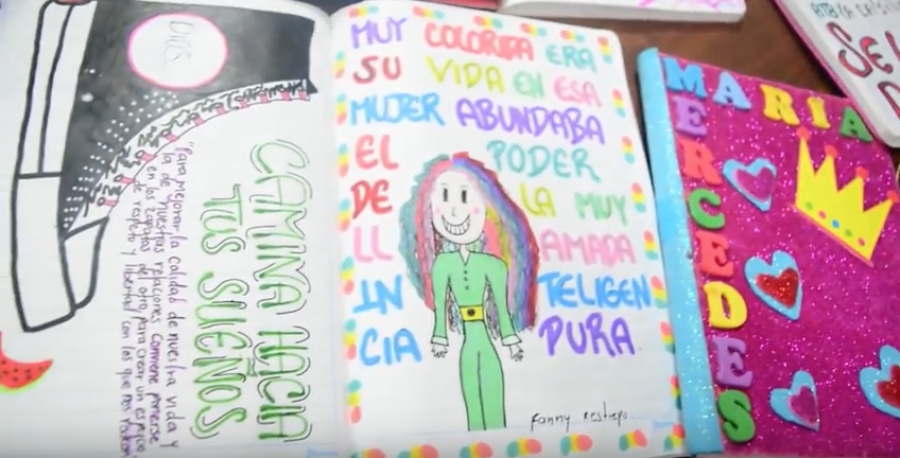 DIOS
CAMINA HACIA
TUS SUEÑOS
"Para mejorar la calidad de nuestra vida y
la de nuestras relaciones conviene ponerse
en los zapatos del otro, para crear un espacio
de respeto y libertad con los que nos
MUY COLORIDA ERA
SU VIDA EN ESA
MUJER ABUNDABA
EL PODER
DE LA MUY
LL AMADA
IN TELIGEN
CIA PURA
fanny restrepo
MARIA
MERCEDES